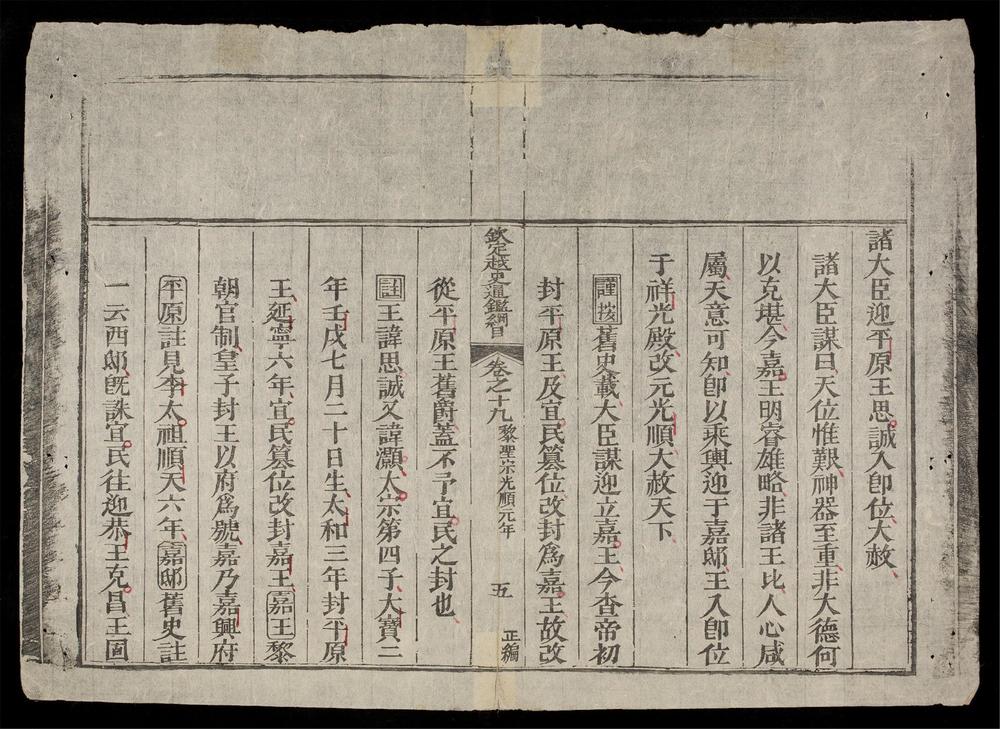 諸大臣迎平原王思誠入卽位大赦
諸大臣謀曰天位惟艱神器至重非大德何
以克堪今嘉王明睿雄略非諸王比人心咸
屬天意可知卽以乘輿迎于嘉邸王入卽位
于祥光殿改元光順大赦天下
謹按舊史載大臣謀迎立嘉王今查帝初
封平原王及宜民篡位改封爲嘉王故改
欽定越史通鑑綱目 卷之十九 黎聖宗光順元年 五 正編
從平原王舊爵蓋不予宜民之封也
註王諱思誠又諱灝太宗第四子大寶二
年壬戌七月二十日生太和三年封平原
王延寧六年宜民篡位改封嘉王嘉王黎
朝官制皇子封王以府爲號嘉乃嘉興府
平原註見李太祖順天六年嘉邸舊史註
一云西邸旣誅宜民往迎恭王克昌王固